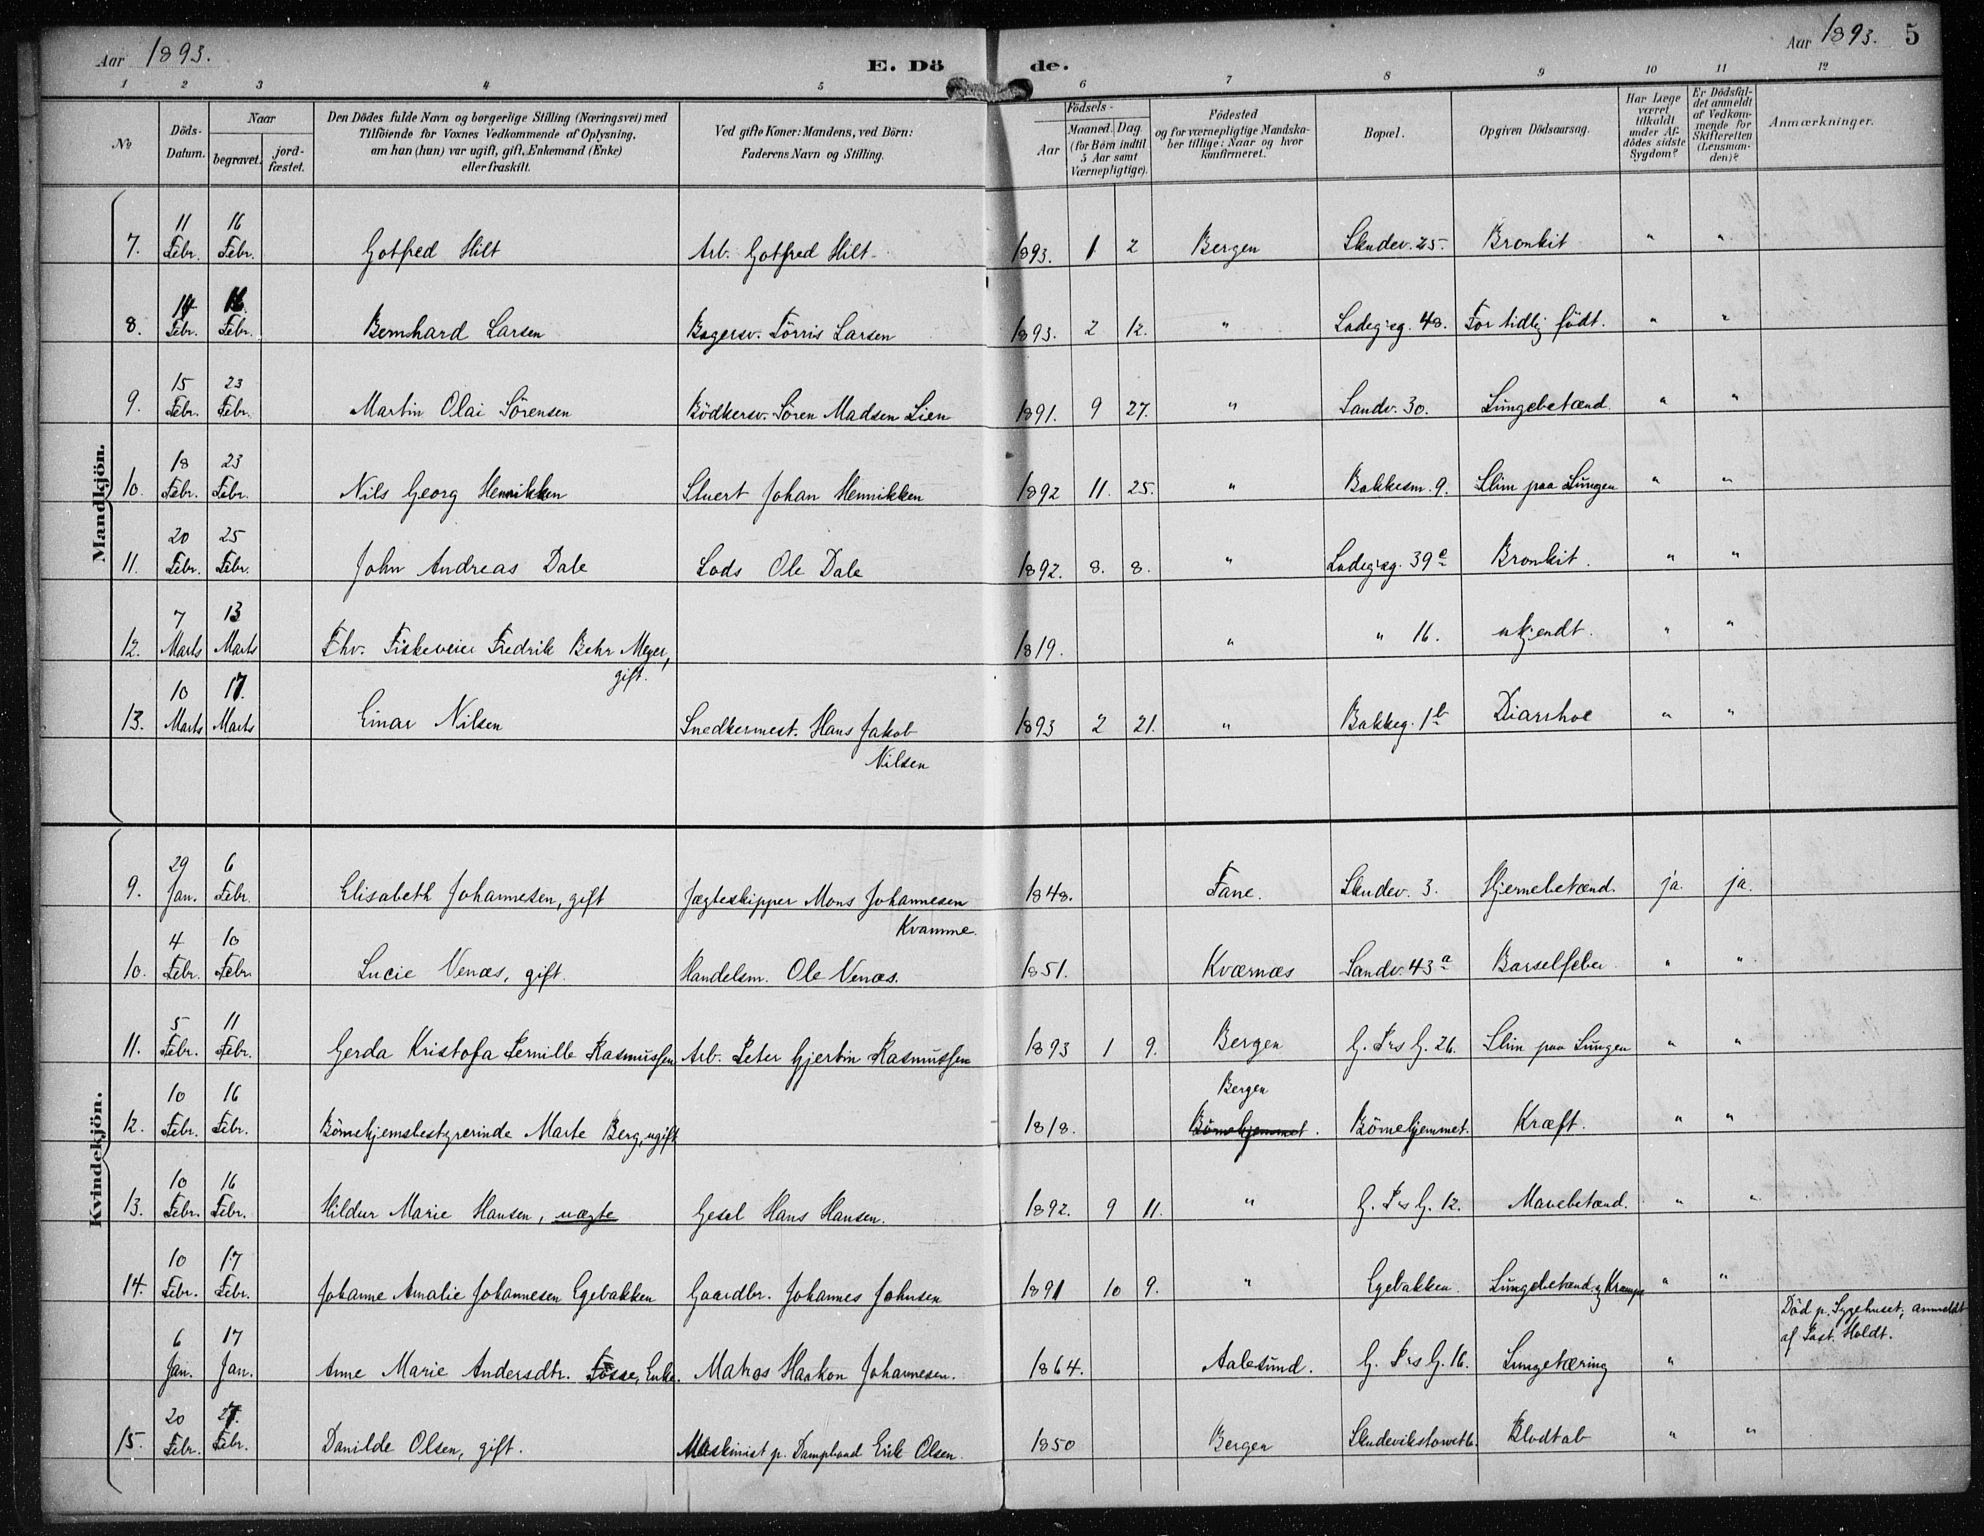 Aar 1893. E. Dö de. Aar 1893. 5
1 2 3 4 5 6 7 8 9 10 11 12
No Döds-Datum. Naar begravet. jordfæstet. Den Dödes fulde Navn og borgerlige Stilling (Næringsvei) med Tilföiende for Voxnes Vedkommende af Oplysning, om han (hun) var ugift, gift, Enkemand (Enke) eller fraskilt. Ved gifte Koner: Mandens, ved Börn: Faderens Navn og Stilling. Födsels- Aar Maaned. Dag (for Börn indtil 5 Aar samt Værnepligtige). Födested og for værnepligtige Mandskaber tillige: Naar og hvor konfirmeret. Bopæl. Opgiven Dödsaarsag. Har Læge været tilkaldt under Afdödes sidste Sygdom? Er Dödsfaldet anmeldt af Vedkommende for Skifteretten (Lensmanden)? Anmærkninger.
Mandkjön.
7. 11 Febr. 16 Febr. Gotfred Hilt Arb. Gotfred Hilt 1893. 1 2 Bergen Skudev. 25. Bronkit " "
8. 14 Febr. 16 Febr. Bernhard Larsen Bagersv. Törris Larsen 1893. 2 12. " Ladegg. 48. For tidlig födt. " "
9. 15 Febr. 23 Febr. Martin Olai Sörensen Bödkersv. Sören Madsen Lien 1891. 9 27. " Sandv. 30. Lungebetænd. " "
10. 18 Febr. 23 Febr. Nils Georg Henrikken Stuert Johan Henrikken 1892 11. 25. " Bakkesm. 9. Slim paa Lungen " "
11. 20 Febr. 25 Febr. John Andreas Dale Lods Ole Dale 1892. 8. 8. " Ladegg. 39 Bronkit. " "
12. 7 Marts 13 Marts Fhv. Fiskeveier Fredrik Behr Meyer, 1819. " " 16. ukjendt. " "
gift.
13. 10 Marts 17. Marts Einar Nilsen Snedkermest. Hans Jakob 1893 2 21. " Bakkeg. 1b Diarrhoe " "
Nilsen
Kvindekjön.
9. 29 Jan. 6 Febr. Elisabeth Johannesen, gift Jægteskipper Mons Johannesen 1848. Fane. Skudev. 3. Hjernebetænd. ja. ja.
Kvamme.
10. 4 Febr. 10 Febr Lucie Venæs, gift. Handelsm. Ole Venæs. 1851. Kværnæs Sandv. 43a Barselfeber " "
11. 5 Febr. 11 Febr. Gerda Kristofa Pernille Rasmussen Arb. Peter Gjertin Rasmussen 1893 1 9. Bergen G. Prs G. 26. Slim paa Lungen " "
12. 10 Febr. 16 Febr. Börnehjemsbestyrerinde Marte Berg, ugift 1818. Bergen Börnehjemmet. Börnehjemmet. Kræft. " "
13. 10 Febr. 16 Febr. Hildur Marie Hansen, uægte Gesel Hans Hansen. 1892. 9 11. " G. Prs G. 12. Mavebetænd. " "
14. 10 Febr. 17 Febr. Johanne Amalie Johannesen Egebakken Gaardbr. Johannes Johnsen 1891 10 9. " Egebakken. Lungebetænd. og Krampe " "
6 Jan. 17 Jan. Anne Marie Andersdtr. Fosse, Enke. Matros Haakon Johannesen. 1864. Aalesund. G. Prs G. 16. Lungetæring " Död p. Sygehuset; anmeldt
af Past. Holdt.
15. 20 Febr. 27. Febr. Danilde Olsen, gift. Maskinist p. Dampbaad Erik Olsen. 1850 Bergen Skudevikstorvet 6. Blodtab " "